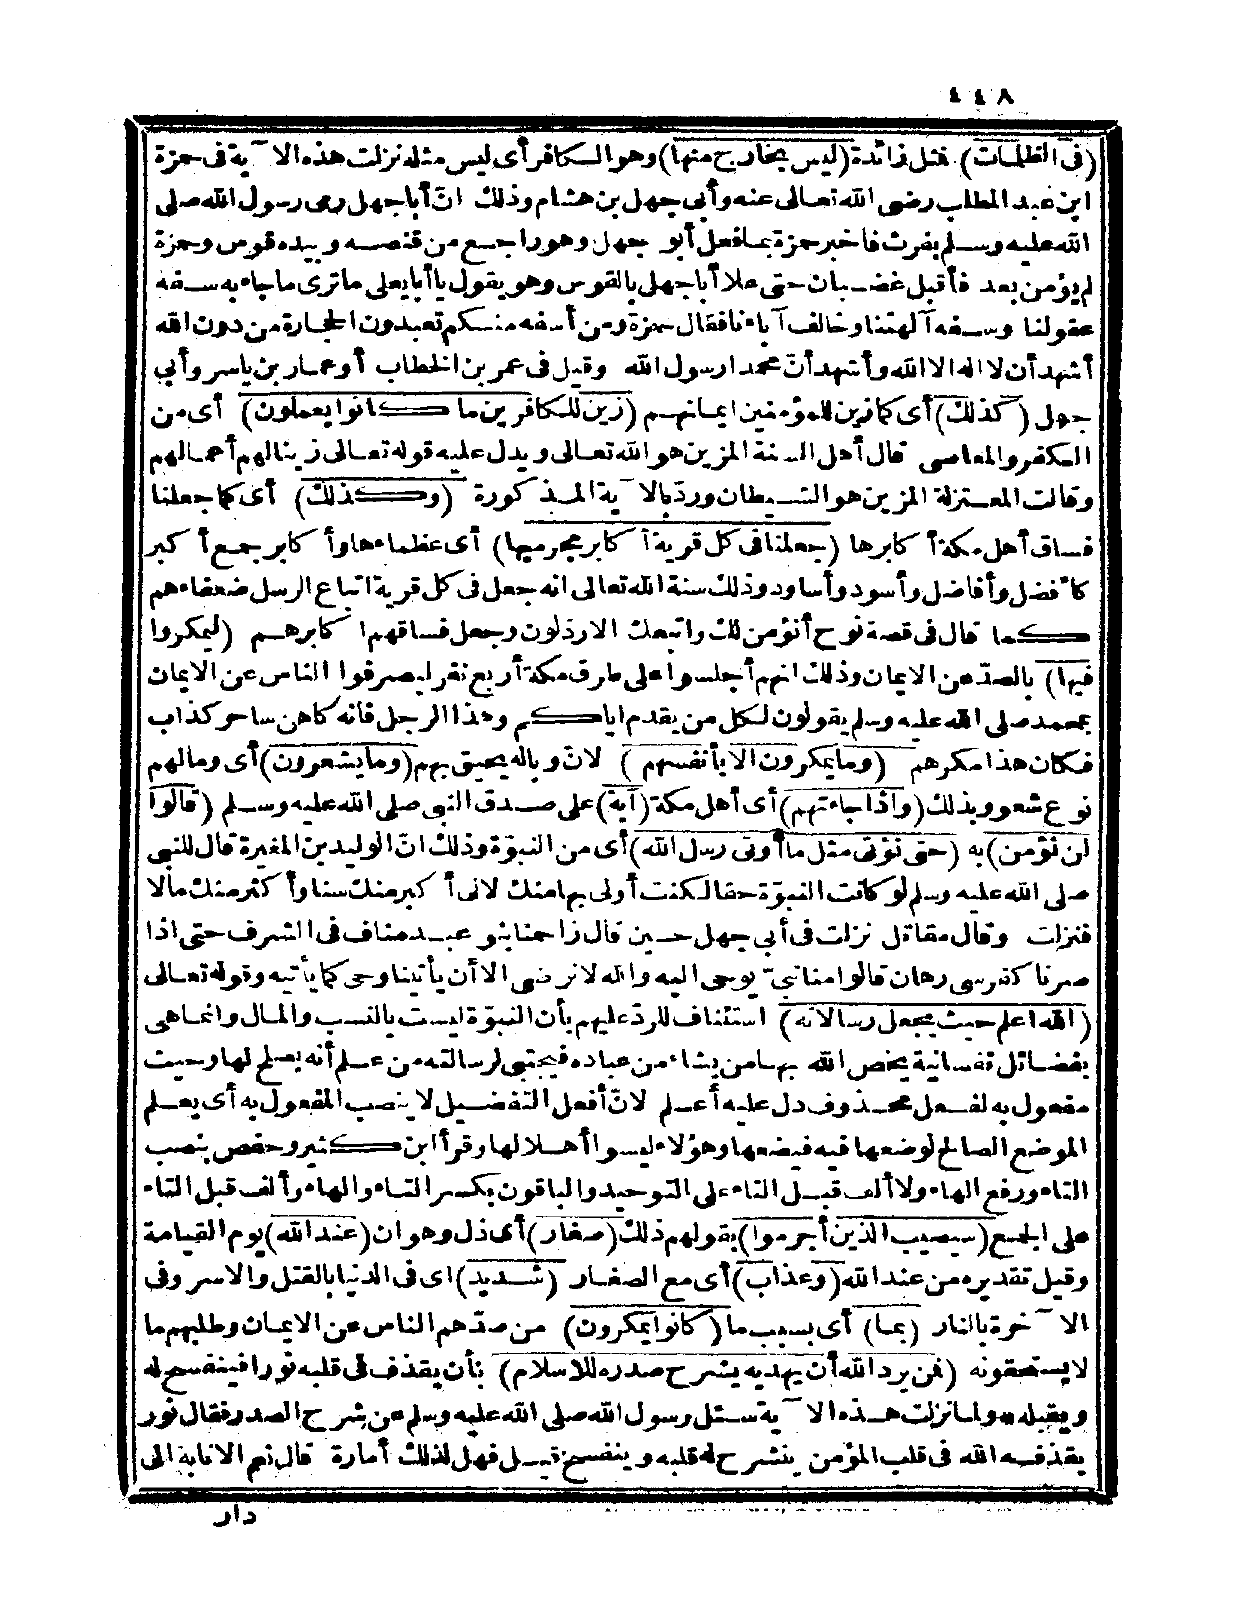 ٤٤٨
(فى الظلمات) فمثل زائدة (ليس بخارج منها) وهو الكافر أى ليس مثله نزلت هذه الآية فى حمزة
ابن عبد المطلب رضى الله تعالى عنه وأبي جهل بن هشام وذلك انّ أبا جهل رمى رسول الله صلى
الله عليه وسلم بفرث فاخبر حمزة بما فعل أبو جهل وهو راجع من قنصه وبيده قوس وحمزة
لم يؤمن بعد فأقبل غضبان حتى علا أبا جهل بالقوس وهو يقول يا أبا يعلى ما ترى ما جاء به سفه
عقولنا وسفه آلهتنا وخالف آباءنا فقال حمزة ومن أسفه منكم تعبدون الحجارة من دون الله
أشهد أن لا اله الا الله وأشهد أنّ محمدا رسول الله وقيل فى عمر بن الخطاب أو عمار بن ياسر وأبي
جهل (كذلك) أى كما زين للمؤمنين ايمانهم (زين للكافرين ما كانوا يعملون) أى من
الكفر والمعاصى قال أهل السنة المزين هو الله تعالى ويدل عليه قوله تعالى زينا لهم أعمالهم
وقالت المعتزلة المزين هو الشيطان وردّ بالآية المذكورة (وكذلك) أى كما جعلنا
فساق أهل مكة أكابرها (جعلنا فى كل قرية أكابر مجرميها) أى عظماءها وأكابر جمع أكبر
كأفضل وأفاضل وأسود وأساود وذلك سنة الله تعالى انه جعل فى كل قرية اتباع الرسل ضعفاءهم
كما قال فى قصة نوح أنؤمن لك واتبعك الارذلون وجعل فساقهم اكابرهم (ليمكروا
فيها) بالصدّ عن الايمان وذلك انهم أجلسوا على طرف مكة أربع نفر ليصرفوا الناس عن الايمان
بمحمد صلى الله عليه وسلم يقولون لكل من يقدم اياكم وهذا الرجل فانه كاهن ساحر كذاب
فكان هذا مكرهم (وما يمكرون الا بأنفسهم) لانّ وباله يحيق بهم (وما يشعرون) أى وما لهم
نوع شعور بذلك (واذا جاءتهم) أى أهل مكة (آية) على صدق النبى صلى الله عليه وسلم (قالوا
لن نؤمن) به (حتى نؤتى مثل ما أوتى رسل الله) أى من النبوّة وذلك انّ الوليد بن المغيرة قال للنبى
صلى الله عليه وسلم لو كانت النبوّة حقا لكنت أولى بها منك لانى أكبر منك سنا وأكثر منك مالا
فنزلت وقال مقاتل نزلت فى أبي جهل حين قال زاحمنا بنو عبد مناف فى الشرف حتى اذا
صرنا كفرسى رهان قالوا منا نبىّ يوحى اليه والله لا نرضى الا أن يأتينا وحى كما يأتيه وقوله تعالى
(الله اعلم حيث يجعل رسالاته) استئناف للردّ عليهم بأن النبوّة ليست بالنسب والمال وانما هى
بفضائل نفسانية يخص الله بها من يشاء من عباده فيجتبى لرسالته من علم أنه يصلح لها وحيث
مفعول به لفعل محذوف دل عليه أعلم لانّ أفعل التفضيل لا ينصب المفعول به أى يعلم
الموضع الصالح لوضعها فيه فيضعها وهؤلاء ليسوا أهلا لها وقرأ ابن كثير وحفص بنصب
التاء ورفع الهاء ولا ألف قبل التاء على التوحيد والباقون بكسر التاء والهاء وألف قبل التاء
على الجمع (سيصيب الذين أجرموا) بقولهم ذلك (صغار) أى ذل وهوان (عند الله) يوم القيامة
وقيل تقديره من عند الله (وعذاب) أى مع الصغار (شديد) اى فى الدنيا بالقتل والاسر وفى
الآخرة بالنار (بما) أى بسبب ما (كانوا يمكرون) من صدّهم الناس عن الايمان وطلبهم ما
لا يستحقونه (فمن يرد الله أن يهديه يشرح صدره للاسلام) بأن يقذف فى قلبه نورا فينفسح له
ويقبله * ولما نزلت هذه الآية سئل رسول الله صلى الله عليه وسلم عن شرح الصدر فقال نور
يقذفه الله فى قلب المؤمن ينشرح له قلبه وينفسح قيل فهل لذلك أمارة قال نعم الانابة الى
دار